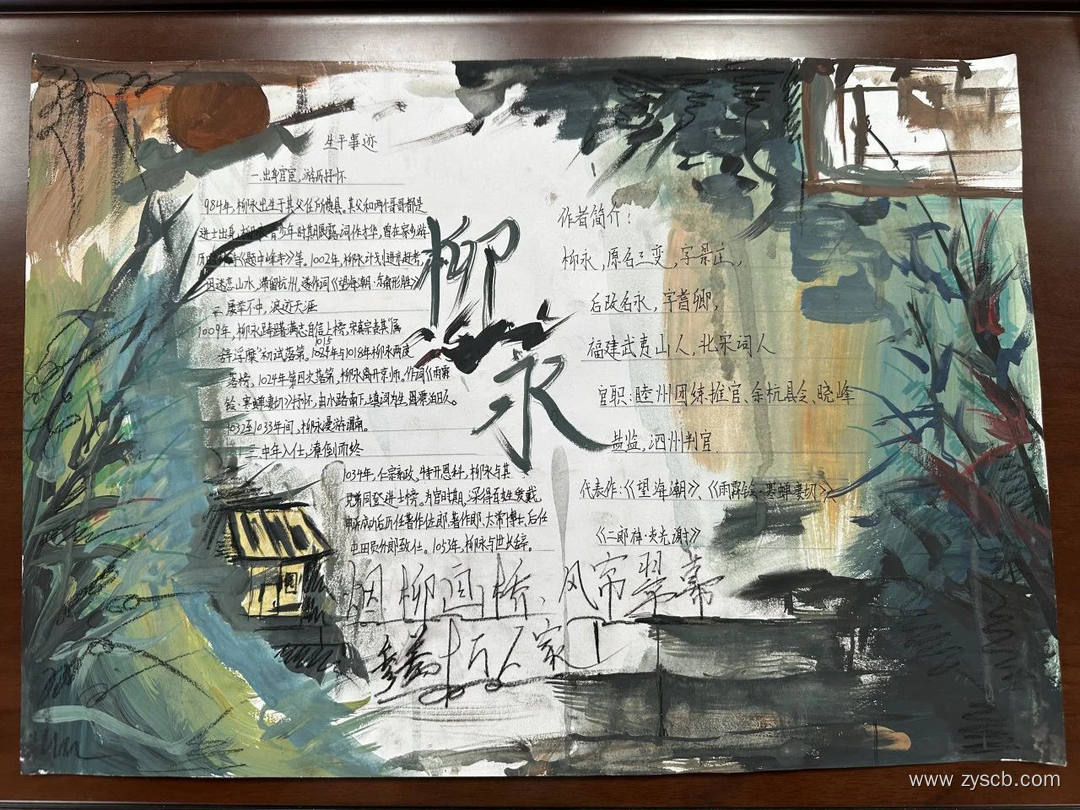 生平事迹
一、出身官宦，游历抒怀
984年，柳永出生于其父任所费县。其父和两个哥哥都是
进士出身，柳永青少年时期展露词作才华，曾在家乡游
历时《题中峰寺》等。1002年，柳永计划进京赶考
迷恋山水，滞留杭州，遂作词《望海潮·东南形胜》
二、屡举不中，浪迹天涯
1009年，柳永踌躇满志自信上榜，宋真宗责其"属
辞浮糜"初试落第，1015 1024年与1018年柳永两度
落榜，1024年第四次落第，柳永离开京师。作词《雨霖
铃·寒蝉凄切》抒怀，由水路南下，填词为生，
1032至1033年间，柳永漫游渭南。
三、中年入仕，潦倒而终
1034年，仁宗亲政，特开恩科，柳永与其
兄弟同登进士榜。为官时期，深得百姓爱戴，
后历任著作佐郎、著作郎、太常博士，后任
屯田员外郎致仕。1053年，柳永与世长辞。
柳
永
作者简介：
柳永，原名三变，字景庄，
后改名永，字耆卿，
福建武夷山人，北宋词人
官职：睦州团练推官、余杭县令、晓峰
盐监、泗州判官
代表作：《望海潮》、《雨霖铃·寒蝉凄切》
《二郎神·炎光谢》
烟柳画桥、风帘翠幕
参差十万人家
www.zyscb.com